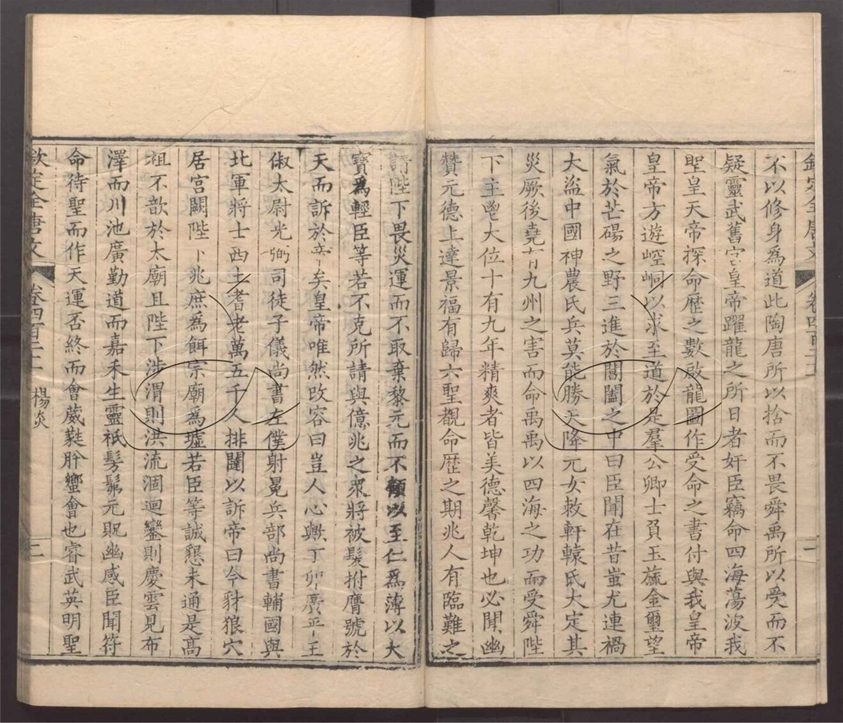 不以修身為道此陶唐所以捨而不畏舜禹所以受而不
疑靈武舊宮皇帝躍龍之所日者奸臣竊命四海蕩波我
聖皇天帝探命歷之數啟龍圖作受命之書付與我皇帝
皇帝方遊崆峒以求至道於是羣公卿士負玉旒金璽望
氣於芒碭之野三進於閶闔之中曰臣聞在昔蚩尤連禍
大盜中國神農氏兵莫能勝天降元女敕軒轅氏大定其
災厥後堯有九州之害而命禹禹以四海之功而受舜陛
下主鬯大位十有九年精爽者皆美德馨乾坤也必開幽
贊元德上達景福有歸六聖覩命歷之期兆人有臨難之
請陛下畏災運而不取棄黎元而不顧以至仁為薄以大
寶為輕臣等若不克所請與億兆之眾將被髮拊膺號於
天而訴於矣皇帝唯然改容曰豈人心歟丁卯廣平王
俶太尉光弼司徒子儀尚書左僕射冕兵部尚書輔國與
北軍將士西土耆老萬五千人排闥以訴帝曰今豺狼穴
居宮闕陛下兆庶為餌宗廟為墟若臣等誠懇未通是高
祖不歆於太廟且陛下涉渭則洪流涸迴鑾則慶雲見布
澤而川池廣勤道而嘉禾生靈祇髣髴元貺幽感臣聞符
命待聖而作天運否終而會葳蕤肸蠁會也睿武英明聖
欽定全唐文 卷四百二十 楊炎 二